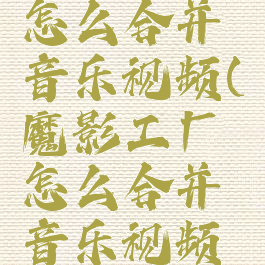 怎么合并
音乐视频(
魔影工厂
怎么合并
音乐视频